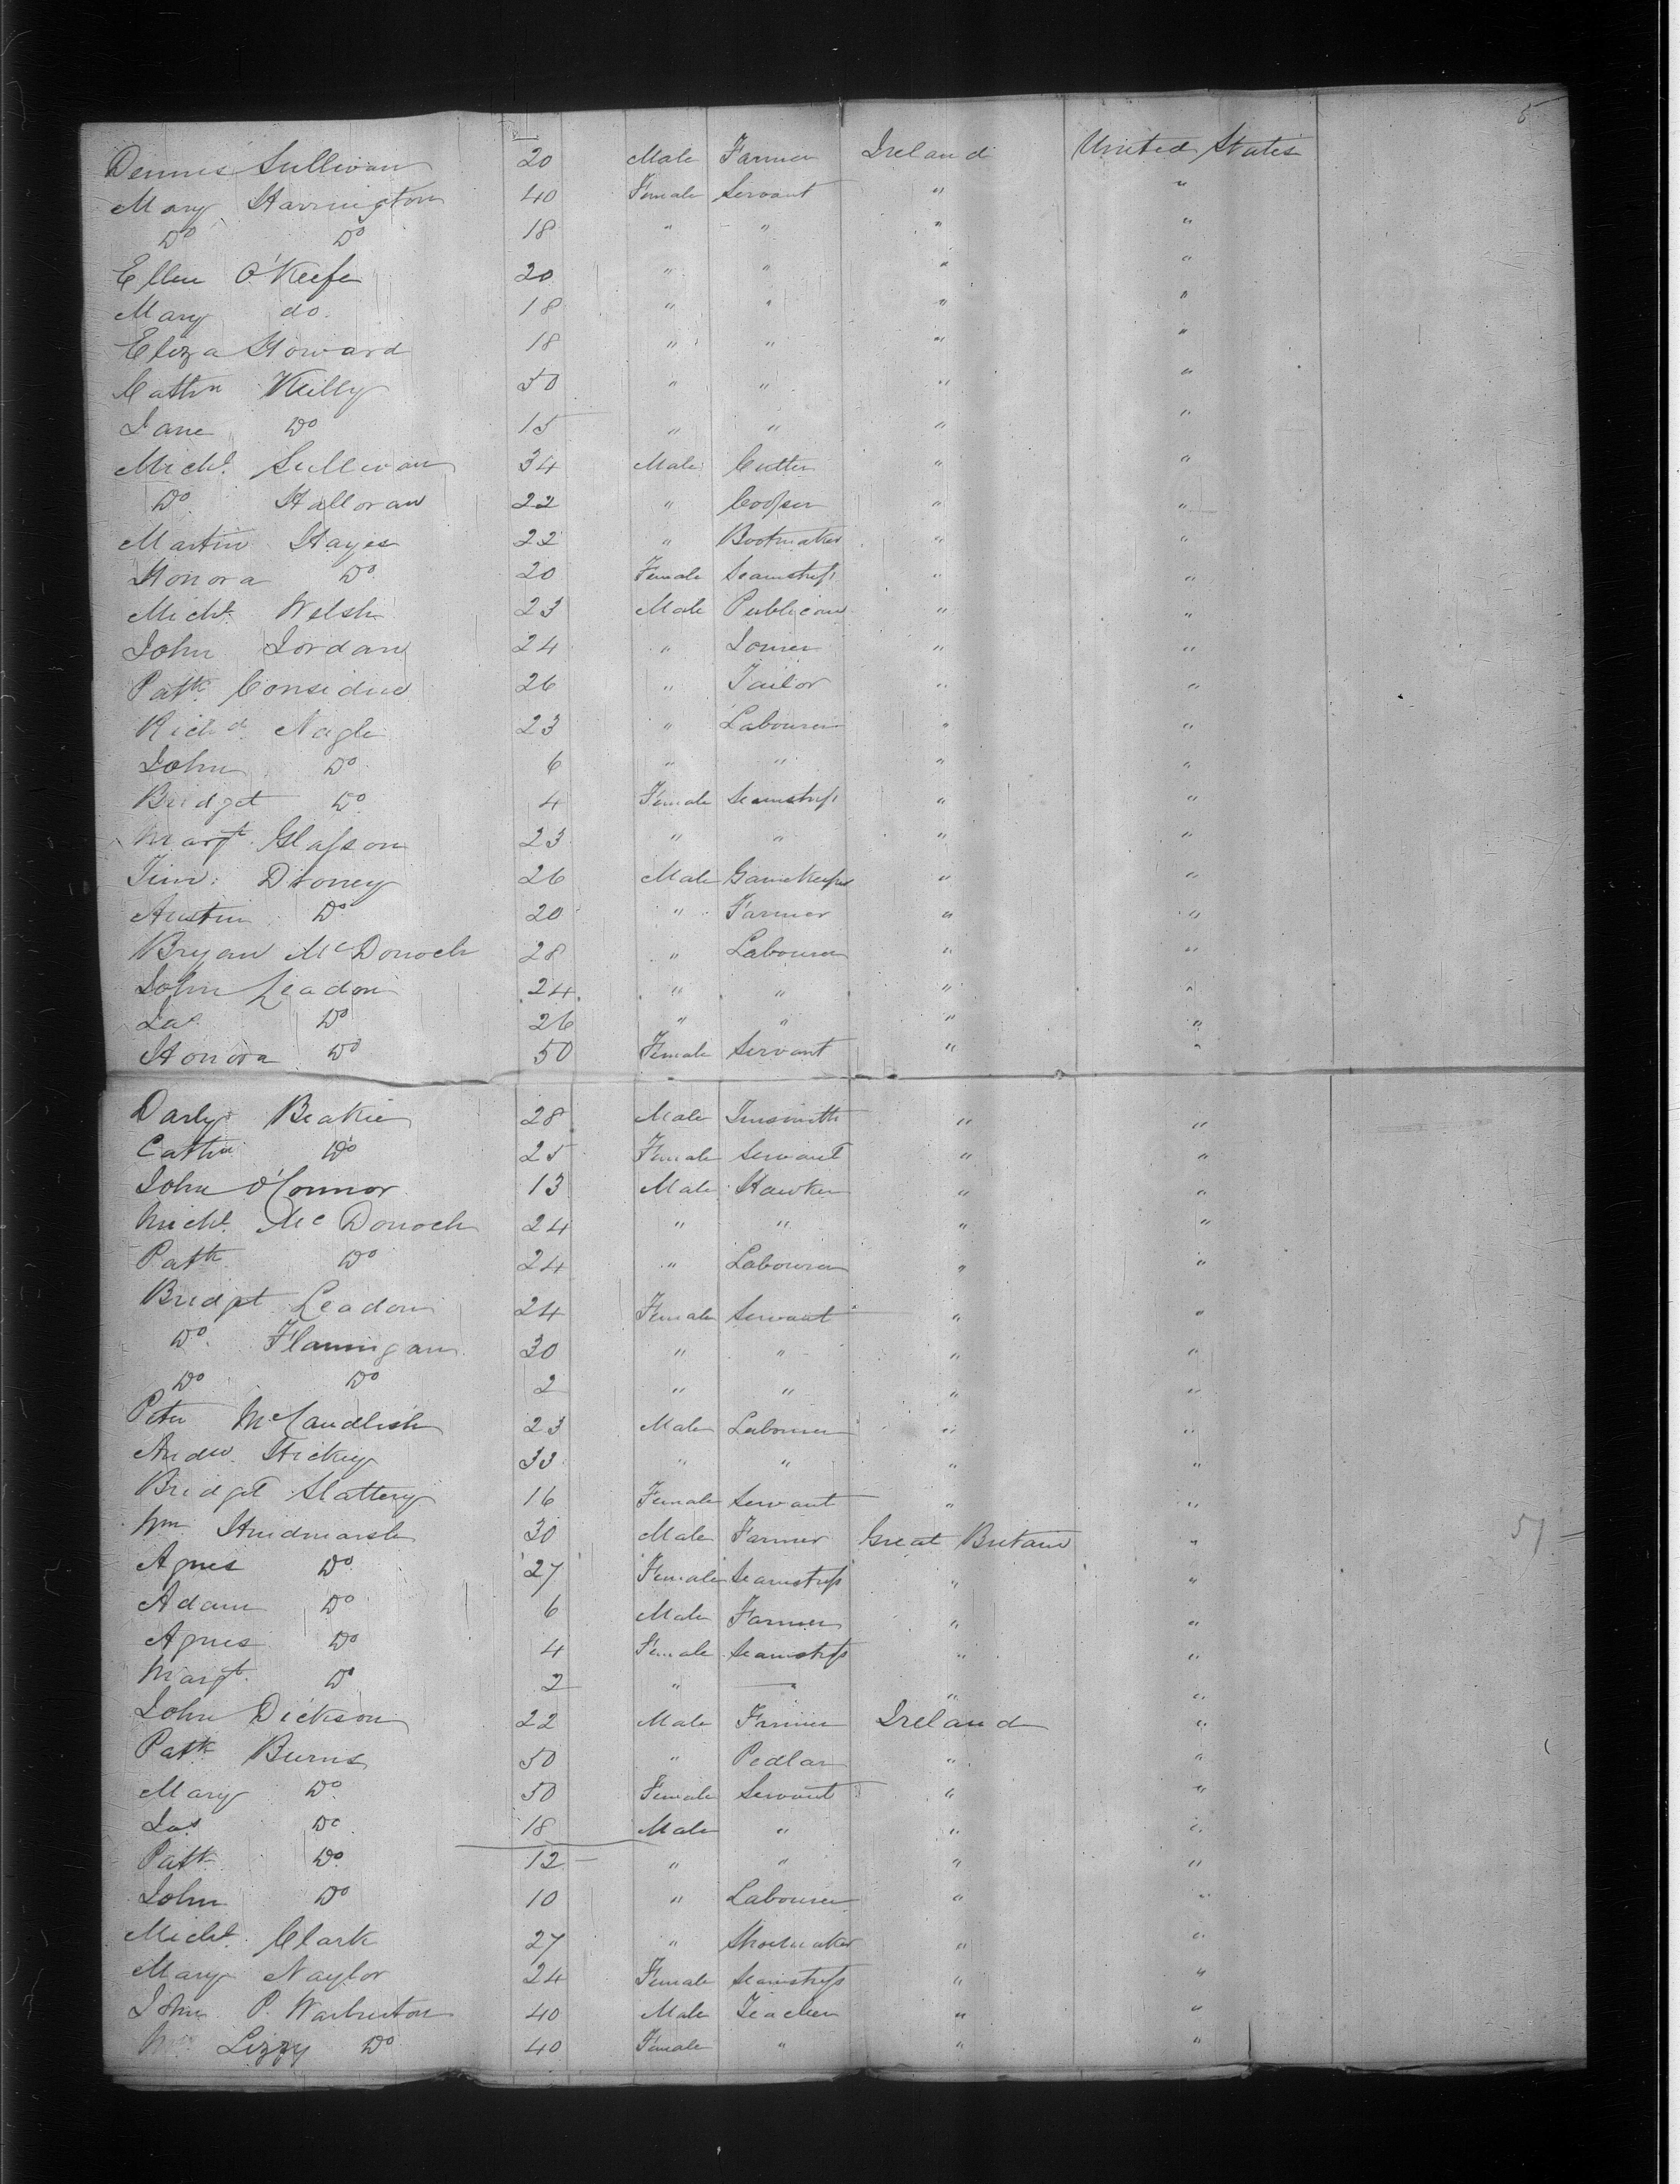 5
Dennis Sullivan 20 Male Farmer Ireland United States
Mary Harrington 40 Female Servant " "
Do Do 18 " " " "
Ellen O'Keefe 20 " " " "
Mary do. 18 " " " "
Eliza Howard 18 " " " "
Cathn Keilly 50 " " " "
Jane Do 15 " " " "
Michl. Sullivan 34 Male Cutter " "
Do. Halloran 22 " Cooper " "
Martin Hayes 22 " Bootmaker " "
Honora Do 20 Female Seamstress " "
Michl. Welsh 23 Male Publican " "
John Jordan 24 " Joiner " "
Patk. Considine 26 " Tailor " "
Richd. Nagle 23 " Labourer " "
John Do 6 " " " "
Bridget Do 4 Female Seamstress " "
Margt. Glasson 23 " " " "
Tim: Droney 26 Male Gamekeeper " "
Austin Do 20 " Farmer " "
Bryan McDonoch 28 " Labourer " "
John Leadon 24 " " " "
Jas. Do 26 " " " "
Honora Do 50 Female Servant " "
Darly Beakie 28 Male Tinsmith " "
Cathn Do 25 Female Servant " "
John O'Connor 13 Male Hawker " "
Michl. McDonoch 24 " " " "
Patk. Do 24 " Labourer " "
Bridget Leadon 24 Female Servant " "
Do. Flannigan 30 " " " "
Do Do 2 " " " "
Peter McCandlish 23 Male Labourer " "
Andw. Hickey 33 " " " "
Bridget Slattery 16 Female Servant " "
Wm. Hindmarsh 30 Male Farmer Great Britain " 51
Agnes Do 27 Female Seamstress " "
Adam Do 6 Male Farmer " "
Agnes Do 4 Female Seamstress " "
Margt. Do 2 " — " "
John Dickson 22 Male Farmer Ireland "
Patk Burns 50 " Pedlar " "
Mary Do 50 Female Servant " "
Jas. Do 18 Male " " "
Patk Do 12 " " " "
John Do 10 " Labourer " "
Michl. Clark 27 " Shoemaker " "
Mary Naylor 24 Female Seamstress " "
John P. Warburton 40 Male Teacher " "
Mrs Lizzy Do 40 Female " " "